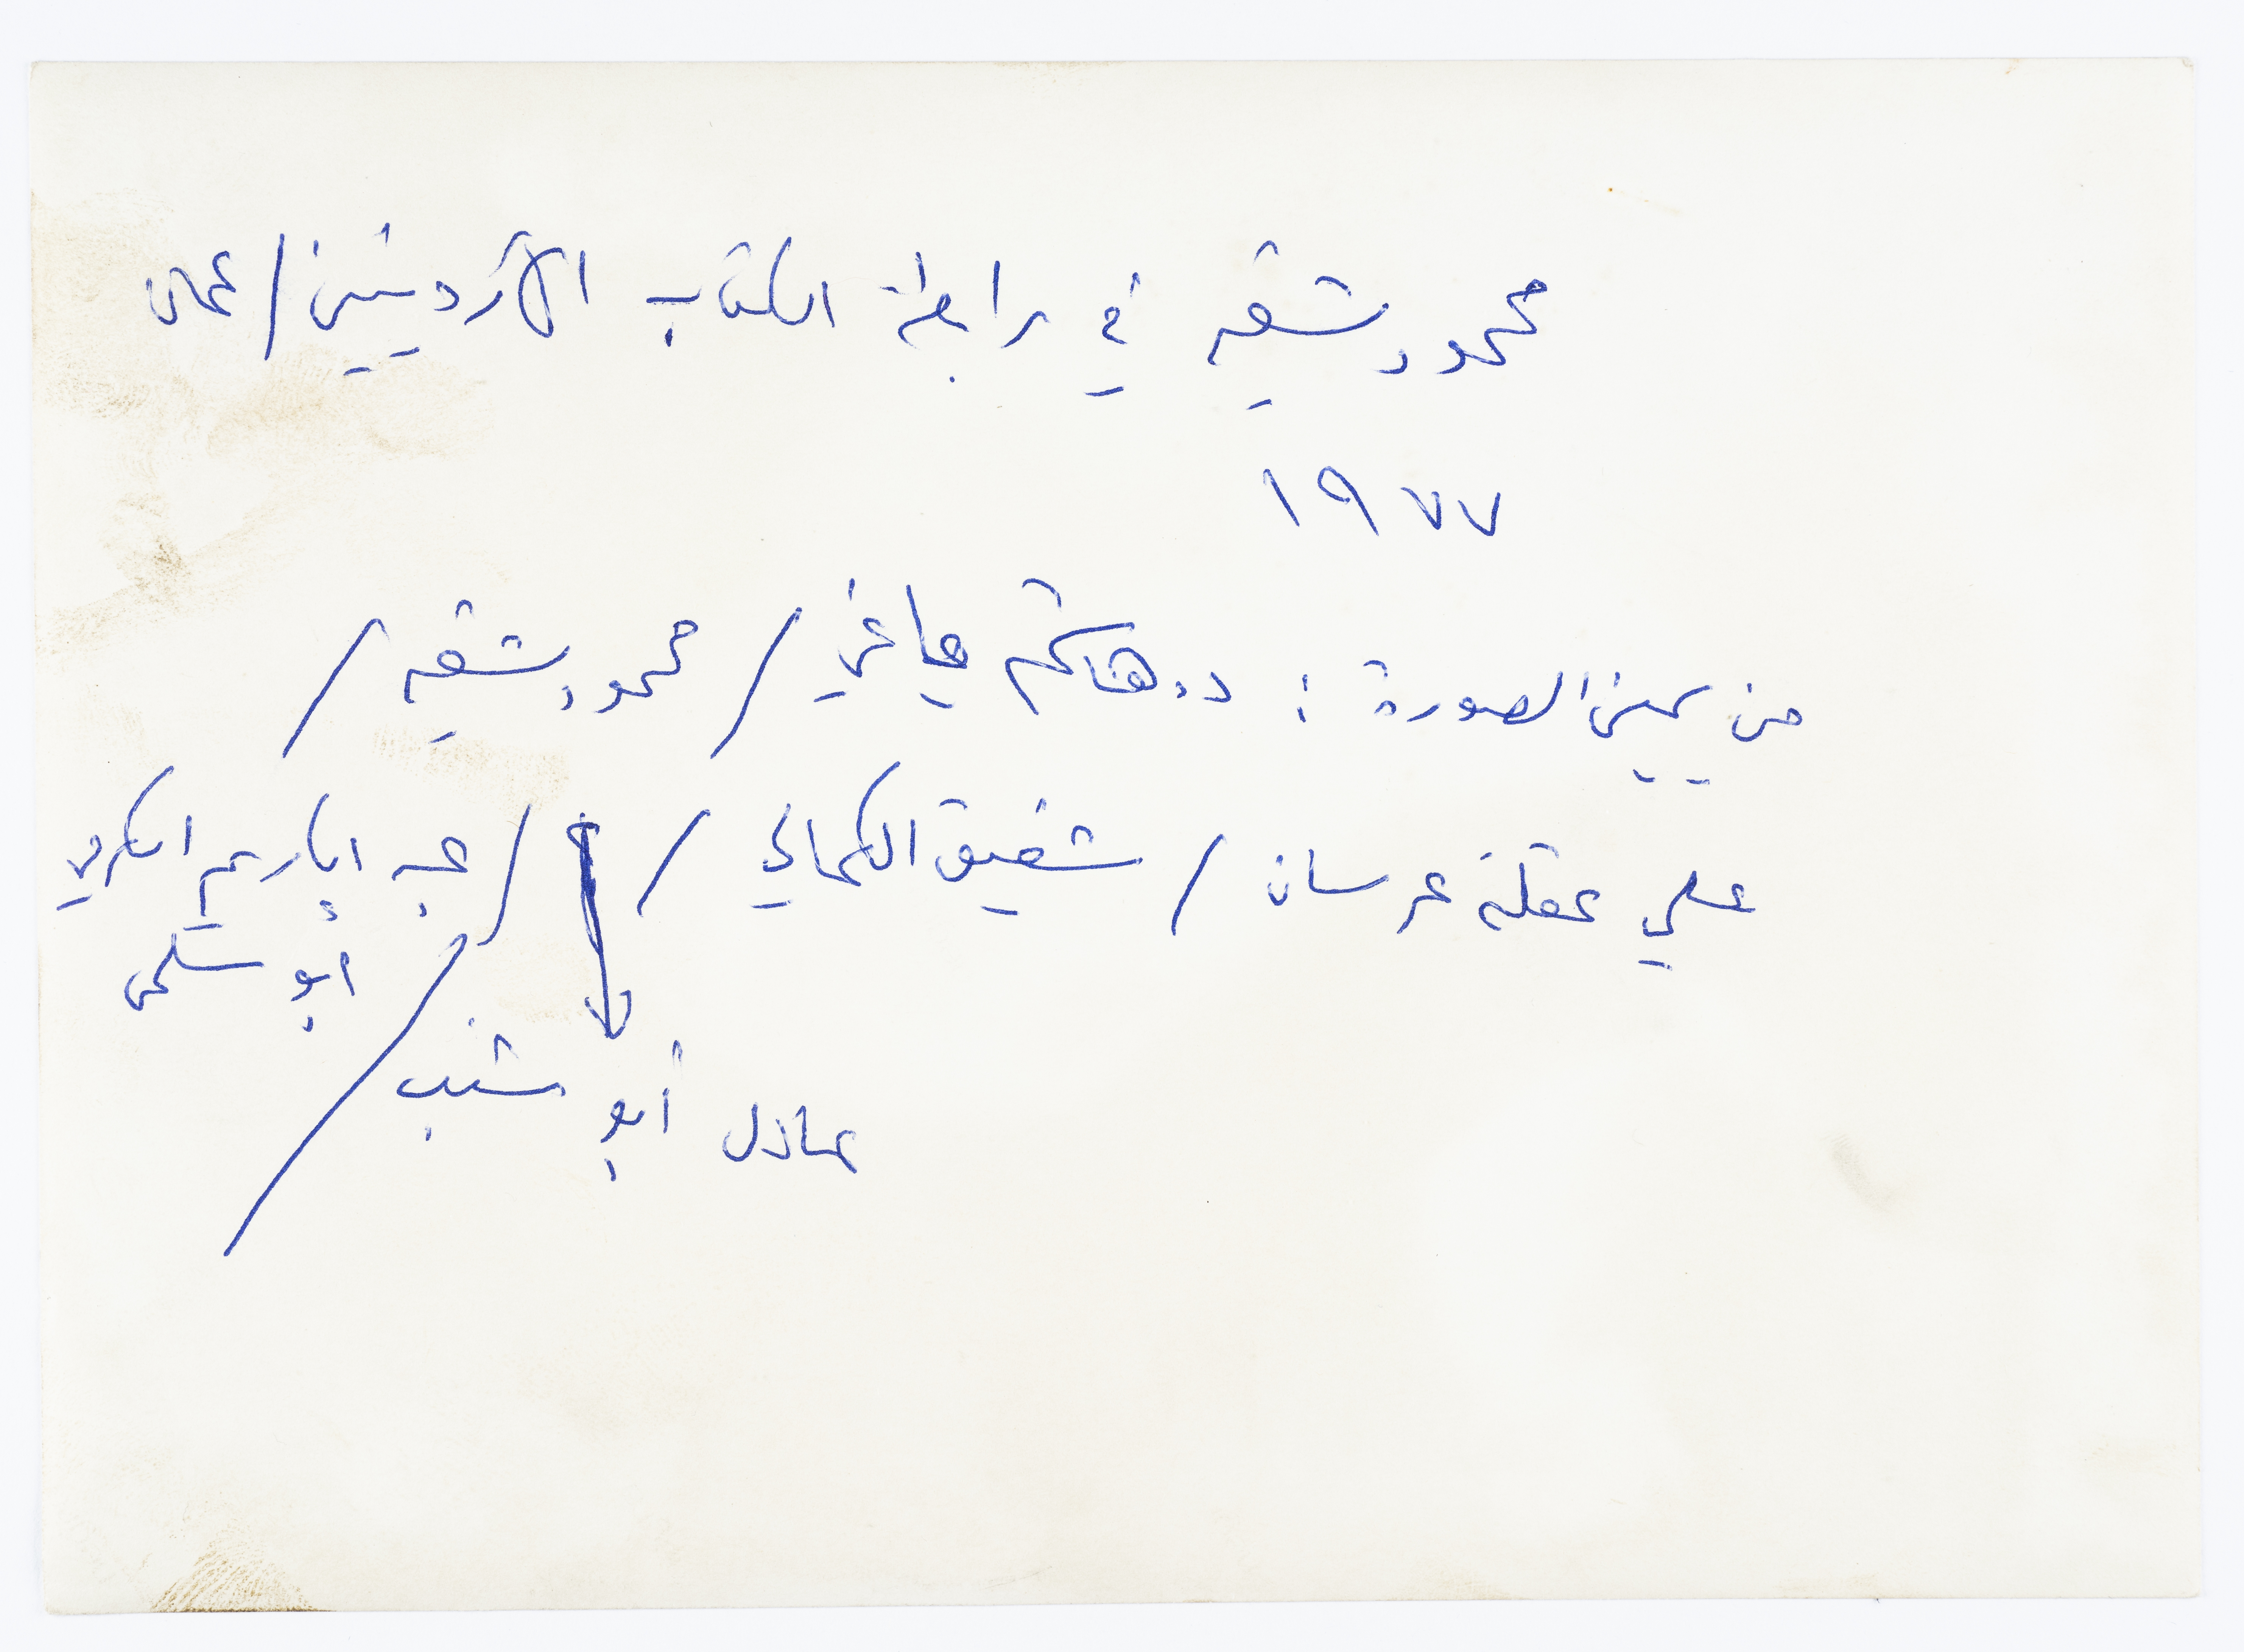 محمود شقير في رابطة الكتاب الأردنيين / عمان
١٩٧٧
من يمين الصورة : د. هاشم ياغي / محمود شقير /
علي عقلة عرسان / شفيق الكمالي / / عبد الكريم الكرمي
ابو سلمى
عادل أبو شنب